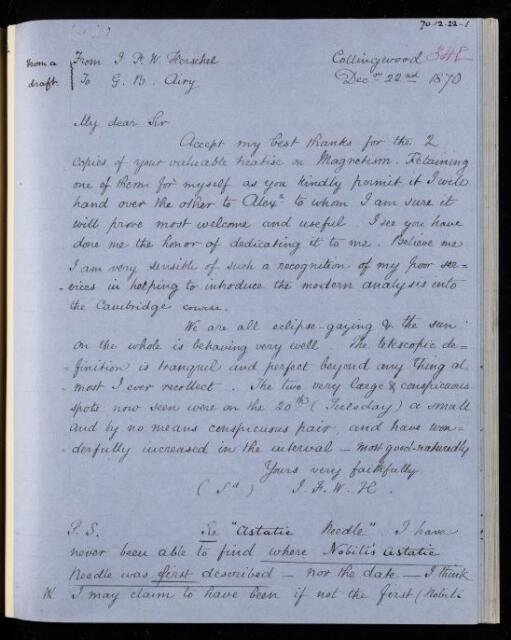 70-12-22-1
From J. F. W. Herschel
To G. B. Airy
from a
draft.
Collingwood
Dec.r 22nd 1870
348
My dear Sir
Accept my best thanks for the 2
copies of your valuable treatise on Magnetism. Retaining
one of them for myself as you kindly permit it I will
hand over the other to Alexr to whom I am sure it
will prove most welcome and useful I see you have
done me the honor of dedicating it to me. Believe me
I am very sensible of such a recognition of my poor ser=
=vices in helping to introduce the modern analysis into
the Cambridge course.
We are all eclipse-gazing & the sun
on the whole is behaving very well. The telescopic de=
=finition is tranquil and perfect beyond any thing al=
=most I ever recollect. The two very large & conspicuous
spots now seen were on the 20th (Tuesday) a small
and by no means conspicuous pair, and have won=
=derfully increased in the interval — most good-naturedly
Yours very faithfully
(Sd) J. F. W. H.
P.S. Re "Astatic Needle" I have
never been able to find where Nobili's astatic
Needle was first described — nor the date — I think
I may claim to have been if not the first (Nobili